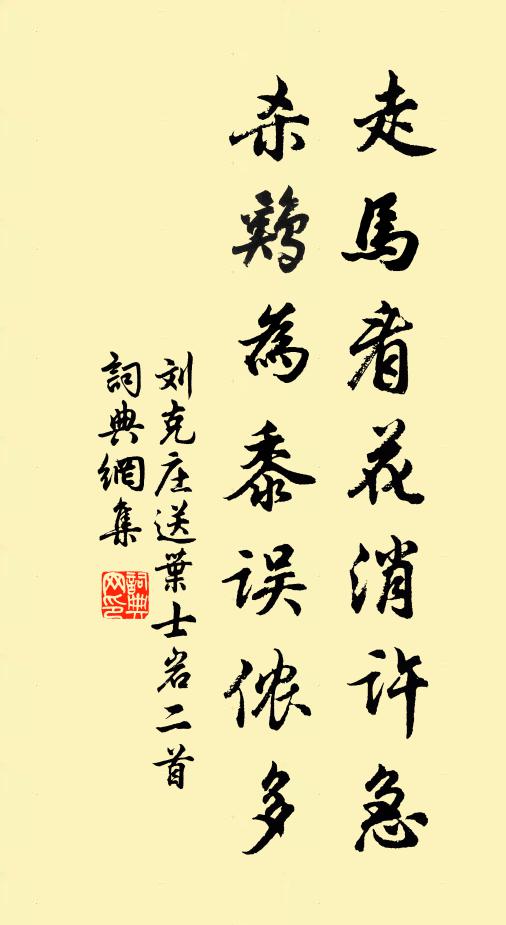 走馬看花消許急
杀鶏為黍误侬多
刘克庄送葉士岩二首
詞典網集
詞典网印